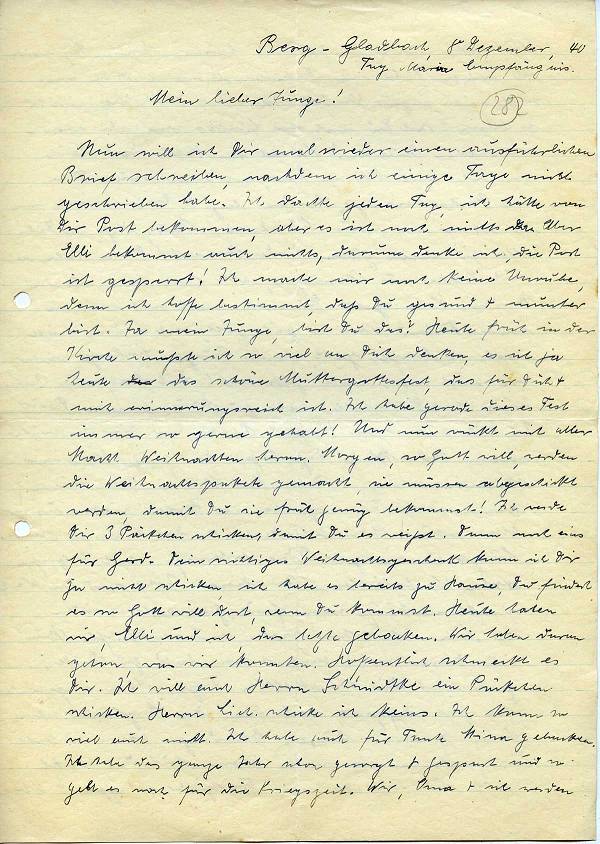 Berg-Gladbach, 8 Dezember, 40
Tag Mariä Empfängnis.
282
Mein lieber Junge!
Nun will ich Dir mal wieder einen ausführlichen
Brief schreiben, nachdem ich einige Tage nicht
geschrieben habe. Ich dachte jeden Tag, ich hätte von
Dir Post bekommen, aber es ist noch nichts da. Über
Elli bekommt auch nichts, darum denke ich, die Post
ist gesperrt! Ich mache mir noch keine Unruhe,
denn ich hoffe bestimmt, daß Du gesund + munter
bist. Ja mein Junge, bist Du das? Heute früh in der
Kirche mußte ich so viel an Dich denken, es ist ja
heute das schöne Muttergottesfest, das für Dich +
mich erinnerungsreich ist. Ich habe gerade dieses Fest
immer so gerne gehabt! Und nun rückt mit aller
Macht Weihnachten heran. Morgen, so Gott will, werden
die Weihnachtspakete gemacht, sie müssen abgeschickt
werden, damit Du sie früh genug bekommst! Ich werde
Dir 3 Päckchen schicken, damit Du es weißt. Dann noch eins
für Gerd. Dein richtiges Weihnachtsgeschenk kann ich Dir
ja nicht schicken, ich habe es bereits zu Hause, Du findest
es so Gott will dort, wenn Du kommst. Heute haben
wir, Elli und ich, das letzte gebacken. Wir haben daran
getan, was wir konnten. Hoffentlich schmeckt es
Dir. Ich will auch Herrn Schmidtke ein Päckchen
schicken. Herrn Lich. schicke ich keins. Ich kann so
viel auch nicht. Ich habe auch für Tante Mina gebacken.
Ich habe das ganze Jahr schon gesorgt + gespart und so
geht es noch, für die Kriegszeit. Wir, Oma + ich werden